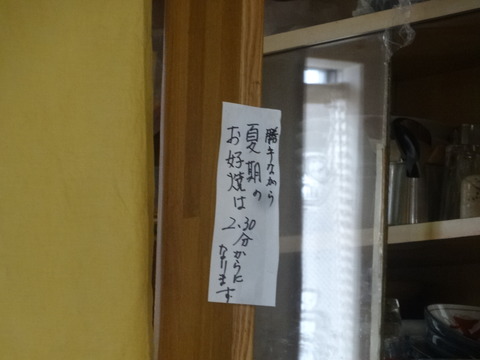 勝手ながら
夏期の
お好焼は
2.30分からに
なります